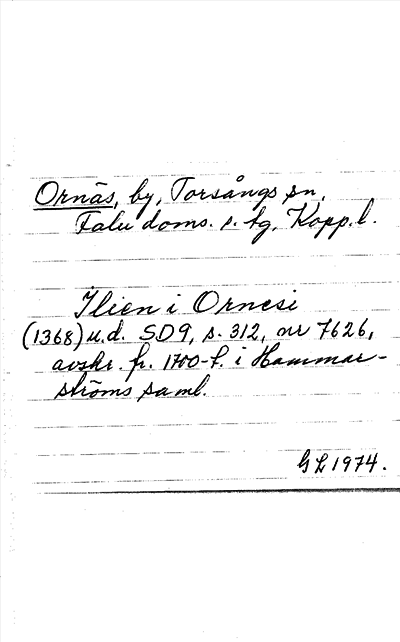 Ornäs, by, Torsångs sn,
Falu doms. s. tg, Kopp. l.
Ilien i Ornesi
(1368) u.d. SD9, s. 312, nr 7626,
avskr. fr. 1700-t. i Hammar-
ströms saml.
GL 1974.